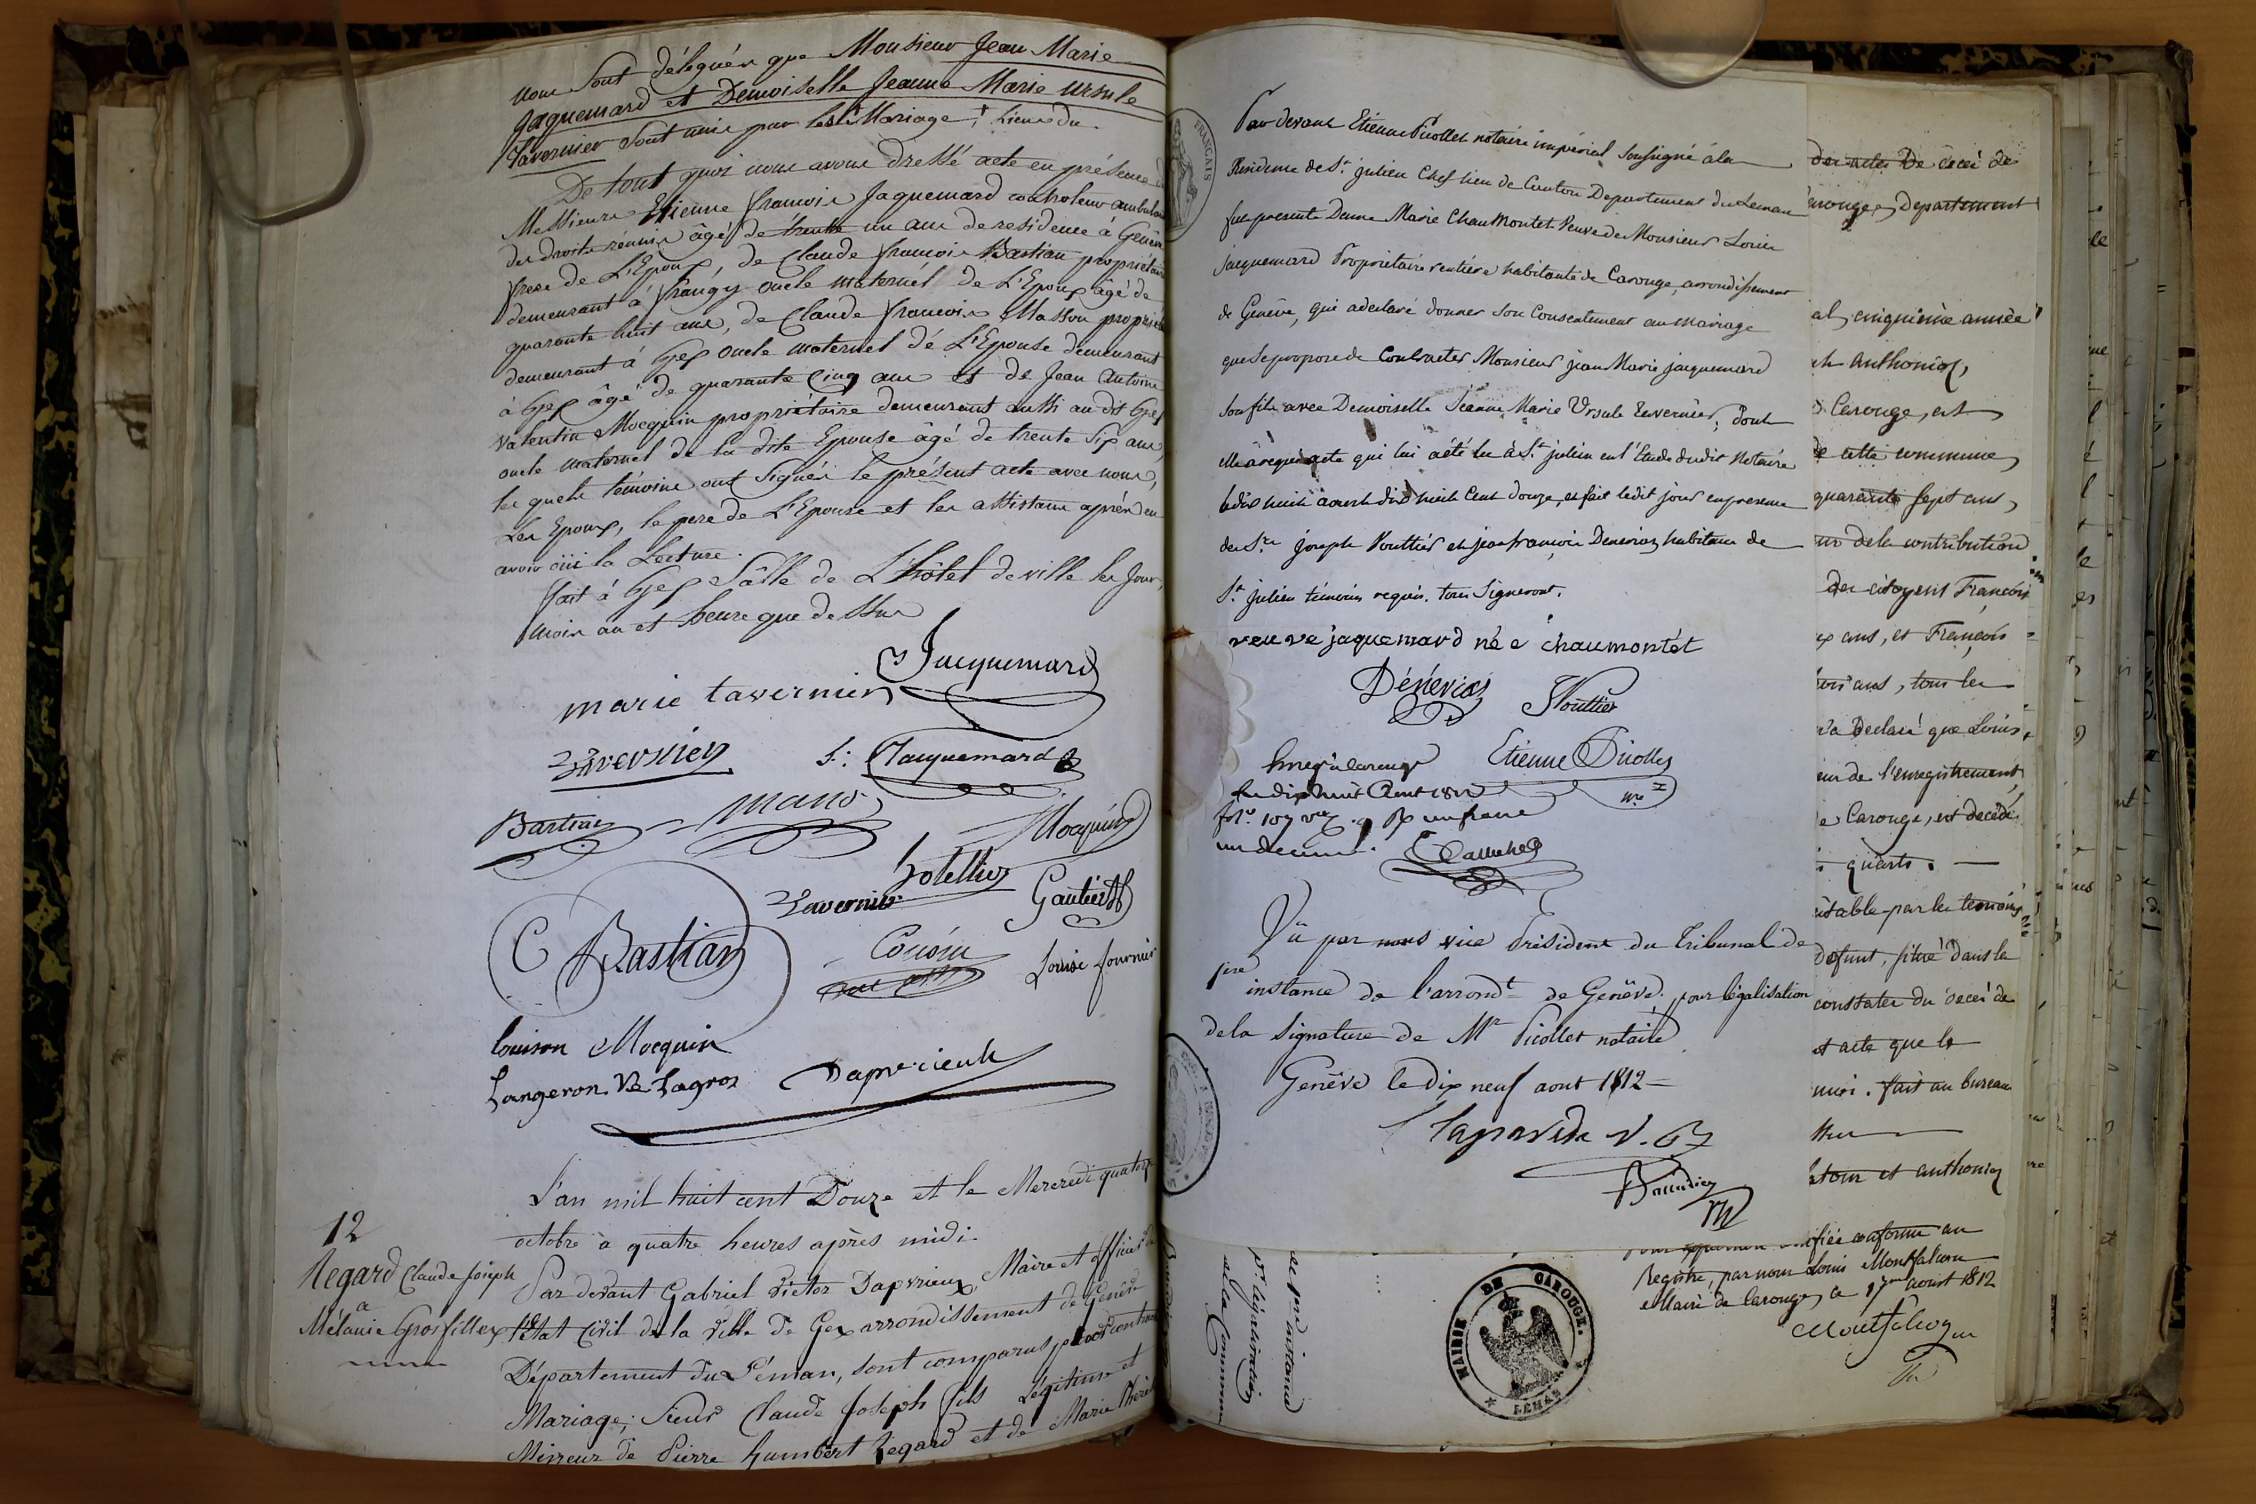 nous sont délégués que Monsieur Jean Marie
Jaquemard et Demoiselle Jeanne Marie Ursule
Tavernier sont unis par les Mariage,
De tout quoi nous avons dressé acte en présence
Messieurs Etienne françois Jaquemard controleur ambulant
des droits réunis âgé de trente un ans de residence à Genève
frere de L'Epoux, de Claude françois Bastian propriétaire
demeurant à frangy oncle maternel de L'Epoux âgé de
quarante huit ans, de Claude françois Masson propriét
demeurant à Gex oncle maternel de L'Epouse demeurant
à Gex âgé de quarante Cinq ans et de Jean Antoine
Valentin Mocquin propriétaire demeurant aussi au dit Gex
oncle maternel de la dite Epouse âgé de trente Six ans,
les quels témoins ont signés le présent acte avec nous,
Les Epoux, le pere de L'Epouse et les assistans après en
avoir oüi la Lecture.
fait à Gex Sâlle de L'hôtel de ville les jour,
mois an et heure que dessus
Jacquemard
marie tavernier
Tavernier
f: Jacquemard
Bastian
Mocquin
Tavernier
Gautier
C Bastian
Cousin
Louise fournier
Louison Mocquin
Langeron Ve Lagros
Dapvrieulx
L'an mil huit cent Douze et le Mercredi quatorze
octobre à quatre heures après midi.
12
Regard Claude Joseph
a
Mélanie Grosfillex
Par devant Gabriel Victor Dapvrieux, Maire et officier de
l'état Civil de la ville de Gex arrondissement de Genève
Département du Léman, sont comparus pour contracter
Mariage; Sieur Claude Joseph fils Légitime et
Mineur de Pierre humbert Regard et de Marie Thérèse
FRANÇAIS
Par devant Etienne Picollet notaire impérial soussigné à la
Résidence de St. Julien Chef lieu de Canton Departement du Leman
fut presente Dame Marie Chaumontet Veuve de Monsieur Louis
Jacquemard Propriétaire rentière habitante de Carouge, arrondissement
de Genève, qui a declaré donner son Consentement au mariage
que se propose de Contracter Monsieur jean Marie jacquemard
son fils avec Demoiselle Jeanne Marie Ursule Tavernier, Dont
elle a requis acte qui lui a été lu à St. julien en l'Etude dudit Notaire
le dix huit aoust dix huit Cent douze, et fait ledit jour en presence
des Srs. joseph Vouttier et jean françois Denériaz habitans de
St. julien témoins requis, tous signeront.
veuve jaquemard née chaumontét
Dénériaz
Vouttier
Etienne Picollet
Enreg. à Carouge
Le dix huit Aout 1812
fol. 107
un franc
un decime.
Vû par nous vice Président du Tribunal de
1ere instance de l'arrondt. de Genêve, pour légalisation
de la signature de Mr. Picollet notaire
Genêve le dix neuf aout 1812
des actes De décès de
Carouge, Departement
al, cinquième année
Anthonioz,
Carouge, est
de cette commune,
quarante sept ans,
de la contribution
des citoyens François
ans, et François
ans, tous les
a Declaré que Louis,
de l'enregistrement,
de Carouge, est décédé
quarts.
par les temoins
défunt, situé dans le
constater du décès de
acte que le
moi. fait au bureau
et anthonioz
conforme au
Registre, par nous Louis Montfalcon
Maire de Carouge, ce 17me aoust 1812
Montfalcon
MAIRIE DE CAROUGE.
LEMAN
de 1ere instance
pr. légalisation
de la Commune